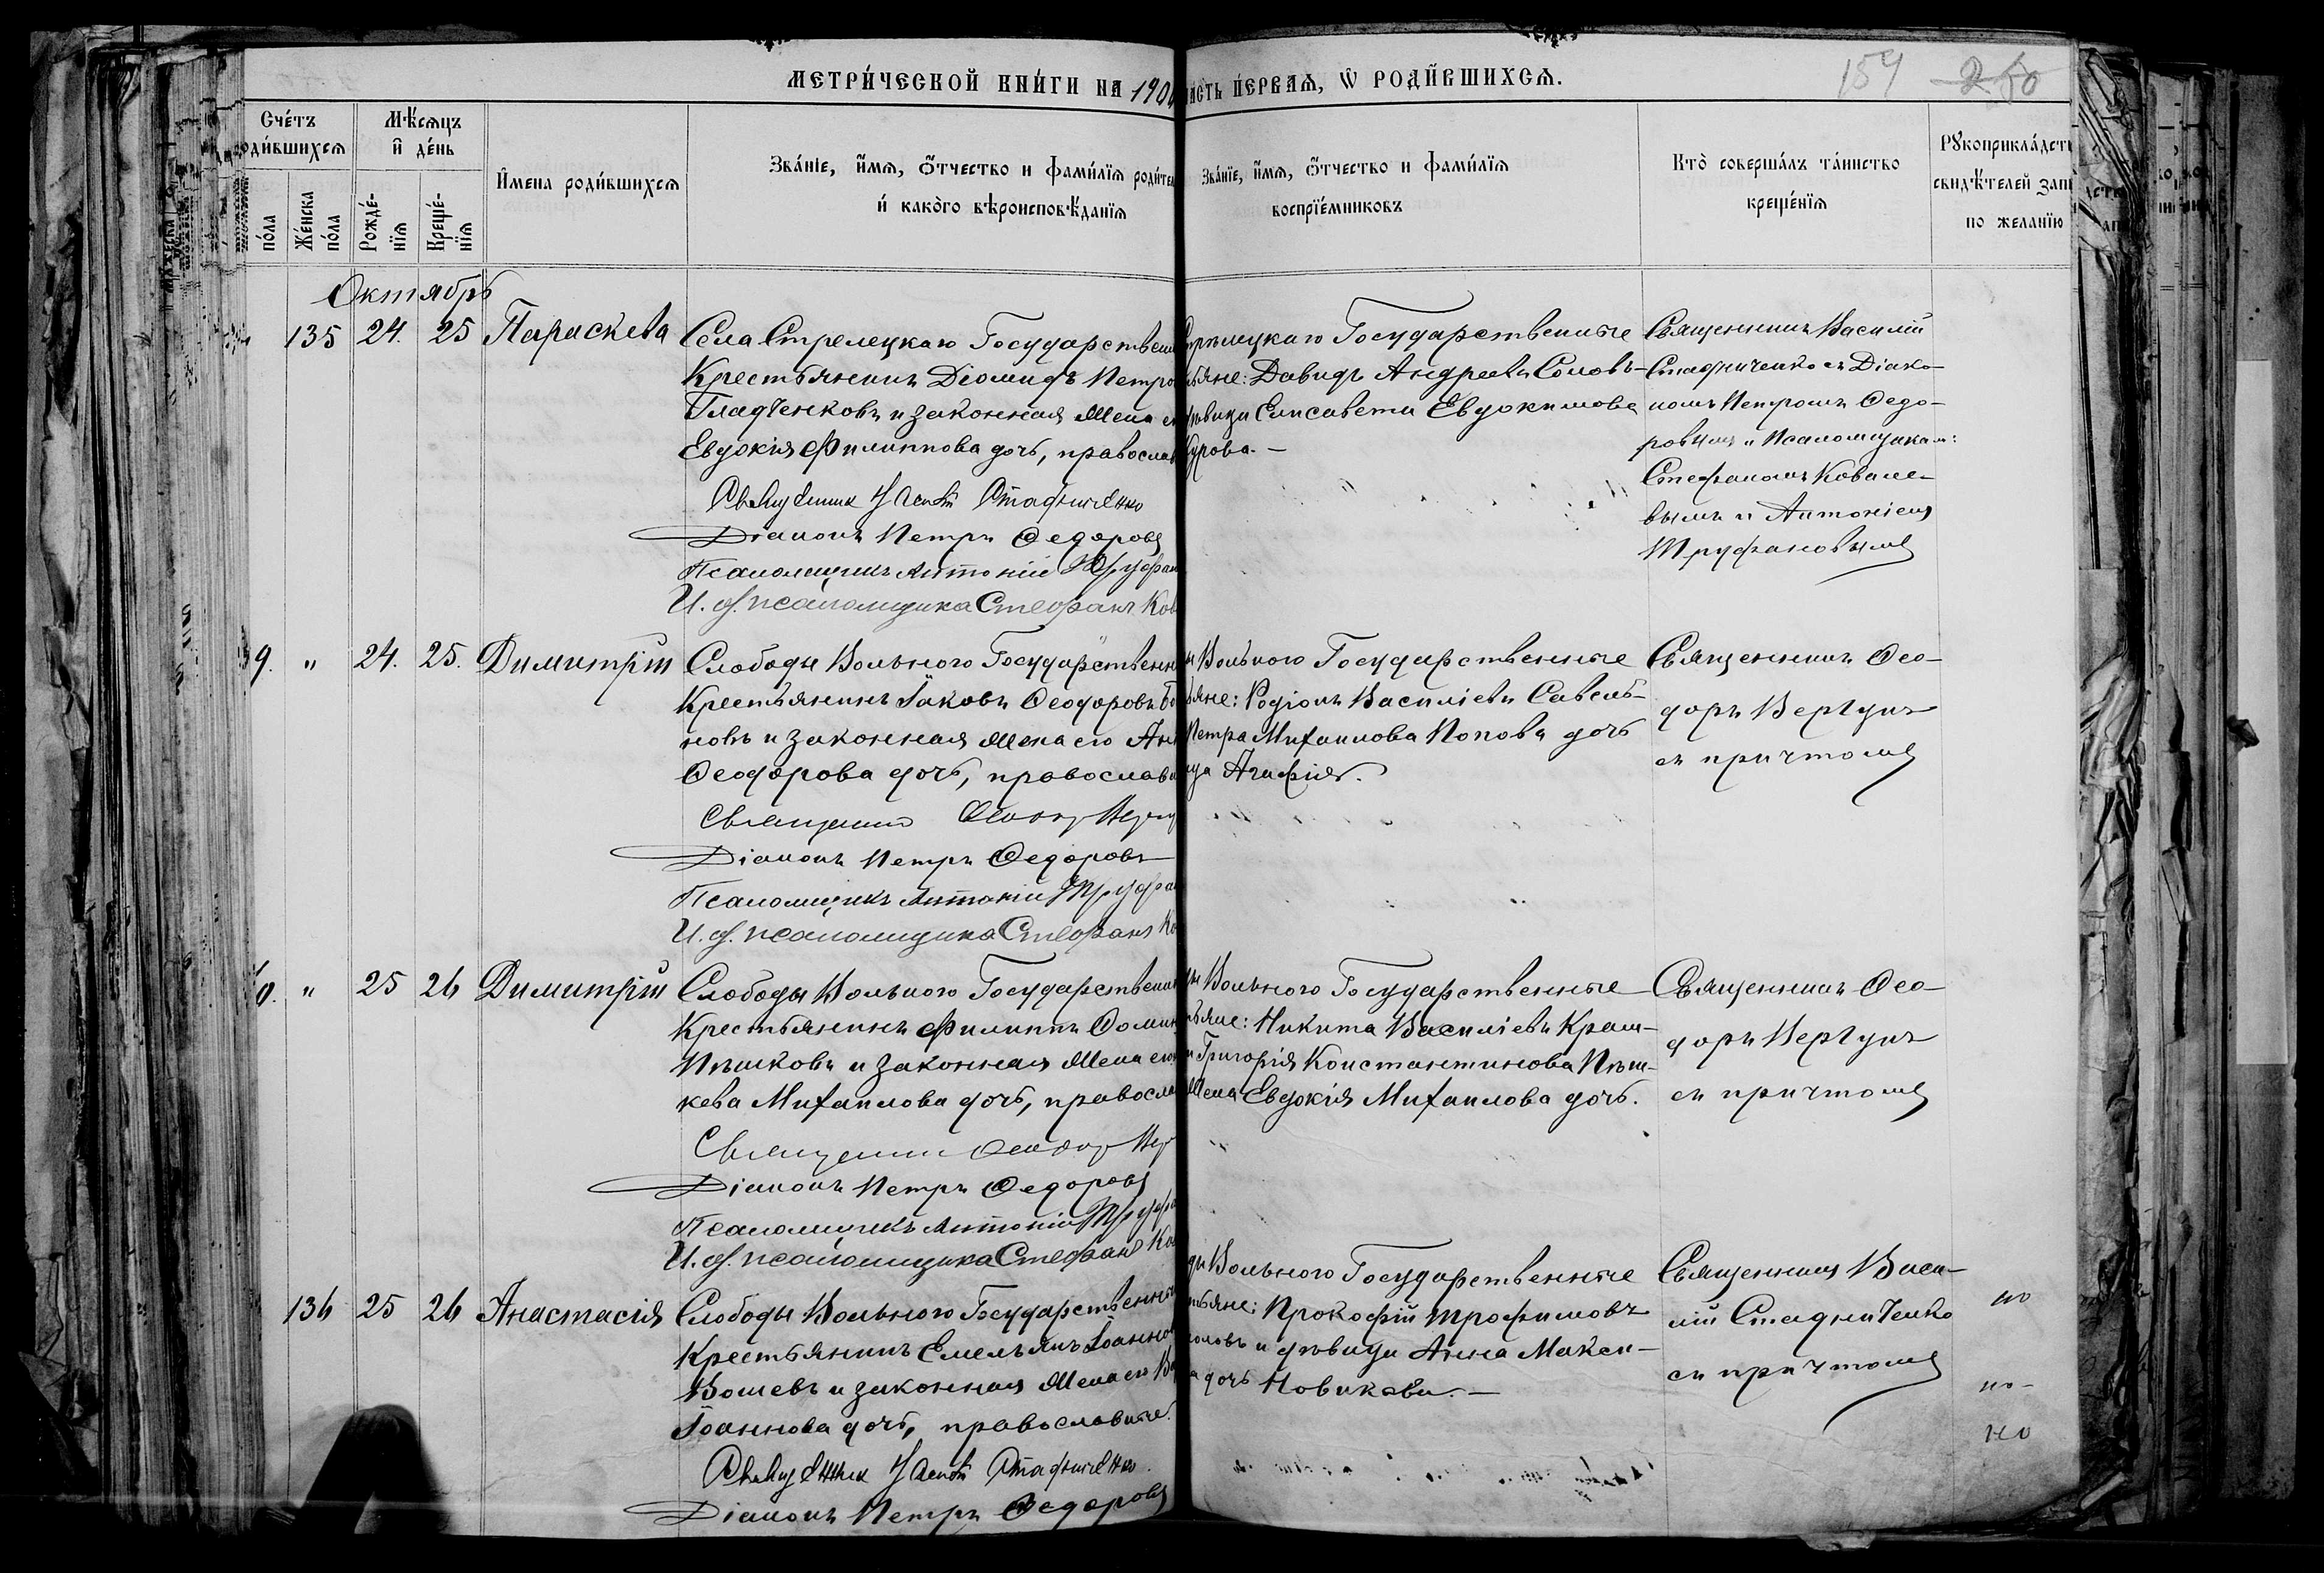 МЕТРИ́ЧЕСКОЙ КНИ́ГИ НА 190
ЧАСТЬ ПЕ́РВАЯ, Ѡ РОДИ́ВШИХСЯ.
159 250
Счéтъ родившихся
Мѣ́сяцъ и дéнь
Имена роди́вшихся
Звáнїе, и́мя, о́тчество и фами́лїя
и какóго вѣроисповѣ́данїя
Звáнїе, и́мя, о́тчество и фами́лїя
воспрїéмниковъ
Ктò совершáлъ тáинство
крещéнїя
Рукоприклáдст
свидѣ́телей зап
по желанїю
пóла
Жéнска пóла
Рождé-нїя
Крещé-нїя
Октябрь
135 24. 25 Параскева
Села Стрелецкаго Государствен
Крестьянинъ Діомидъ Петро
Гладченковъ и законная жена е
Евдокія Филиппова дочь, православ
Священник Стадниченко
Діаконъ Петръ Ѳедоровъ
Псаломщикъ Антоній Труфан
И. д. псаломщика Стефанъ Ков
Стрѣлецкаго Государственные
яне: Давидъ Андреевъ Соловь-
дѣвица Елисавета Евдокимова
Курова.—
Священникъ Василій
Стадниченко съ Діако-
номъ Петромъ Ѳедо-
ровымъ и Псаломщикам:
Стефаномъ Ковале-
вымъ и Антоніемъ
Труфановымъ
9. " 24. 25. Димитрій
Слободы Вольного Государственн
Крестьянинъ Іаковъ Ѳеодоровъ
новъ и законная жена его Ан
Ѳеодорова дочь, православн
Священник Ѳеодор Вергу
Діаконъ Петръ Ѳедоровъ
Псаломщикъ Антоній Труфан
И. д. псаломщика Стефанъ Ко
Вольного Государственные
яне: Родіонъ Василіевъ Савель-
Петра Михаилова Попова дочь
Агафія.
Священникъ Ѳео-
доръ Вергунъ
съ причтомъ
0. " 25 26 Димитрій
Слободы Вольного Государственн
Крестьянинъ Филиппъ Ѳомин
Пѣшковъ и законная жена его
кева Михаилова дочь, правосла
Священник Ѳеодор Вер
Діаконъ Петръ Ѳедоровъ
Псаломщикъ Антоній Труфа
И. д. псаломщика Стефанъ Ко
Вольного Государственные
яне: Никита Василіевъ Краш-
Григорія Константинова Пѣш-
жена Евдокія Михаилова дочь.
Священникъ Ѳео-
доръ Вергунъ
съ причтомъ
136 25 26 Анастасія
Слободы Вольного Государственны
Крестьянинъ Емельянъ Іоанно
Вошевъ и законная жена его
Іоаннова дочь, православные.
Священник Стадниченко
Діаконъ Петръ Ѳедоровъ
Вольного Государственные
яне: Прокофій Трофимовъ
и дѣвица Анна Макси-
дочь Новикова.—
Священникъ Васи-
лій Стадниченко
съ причтомъ